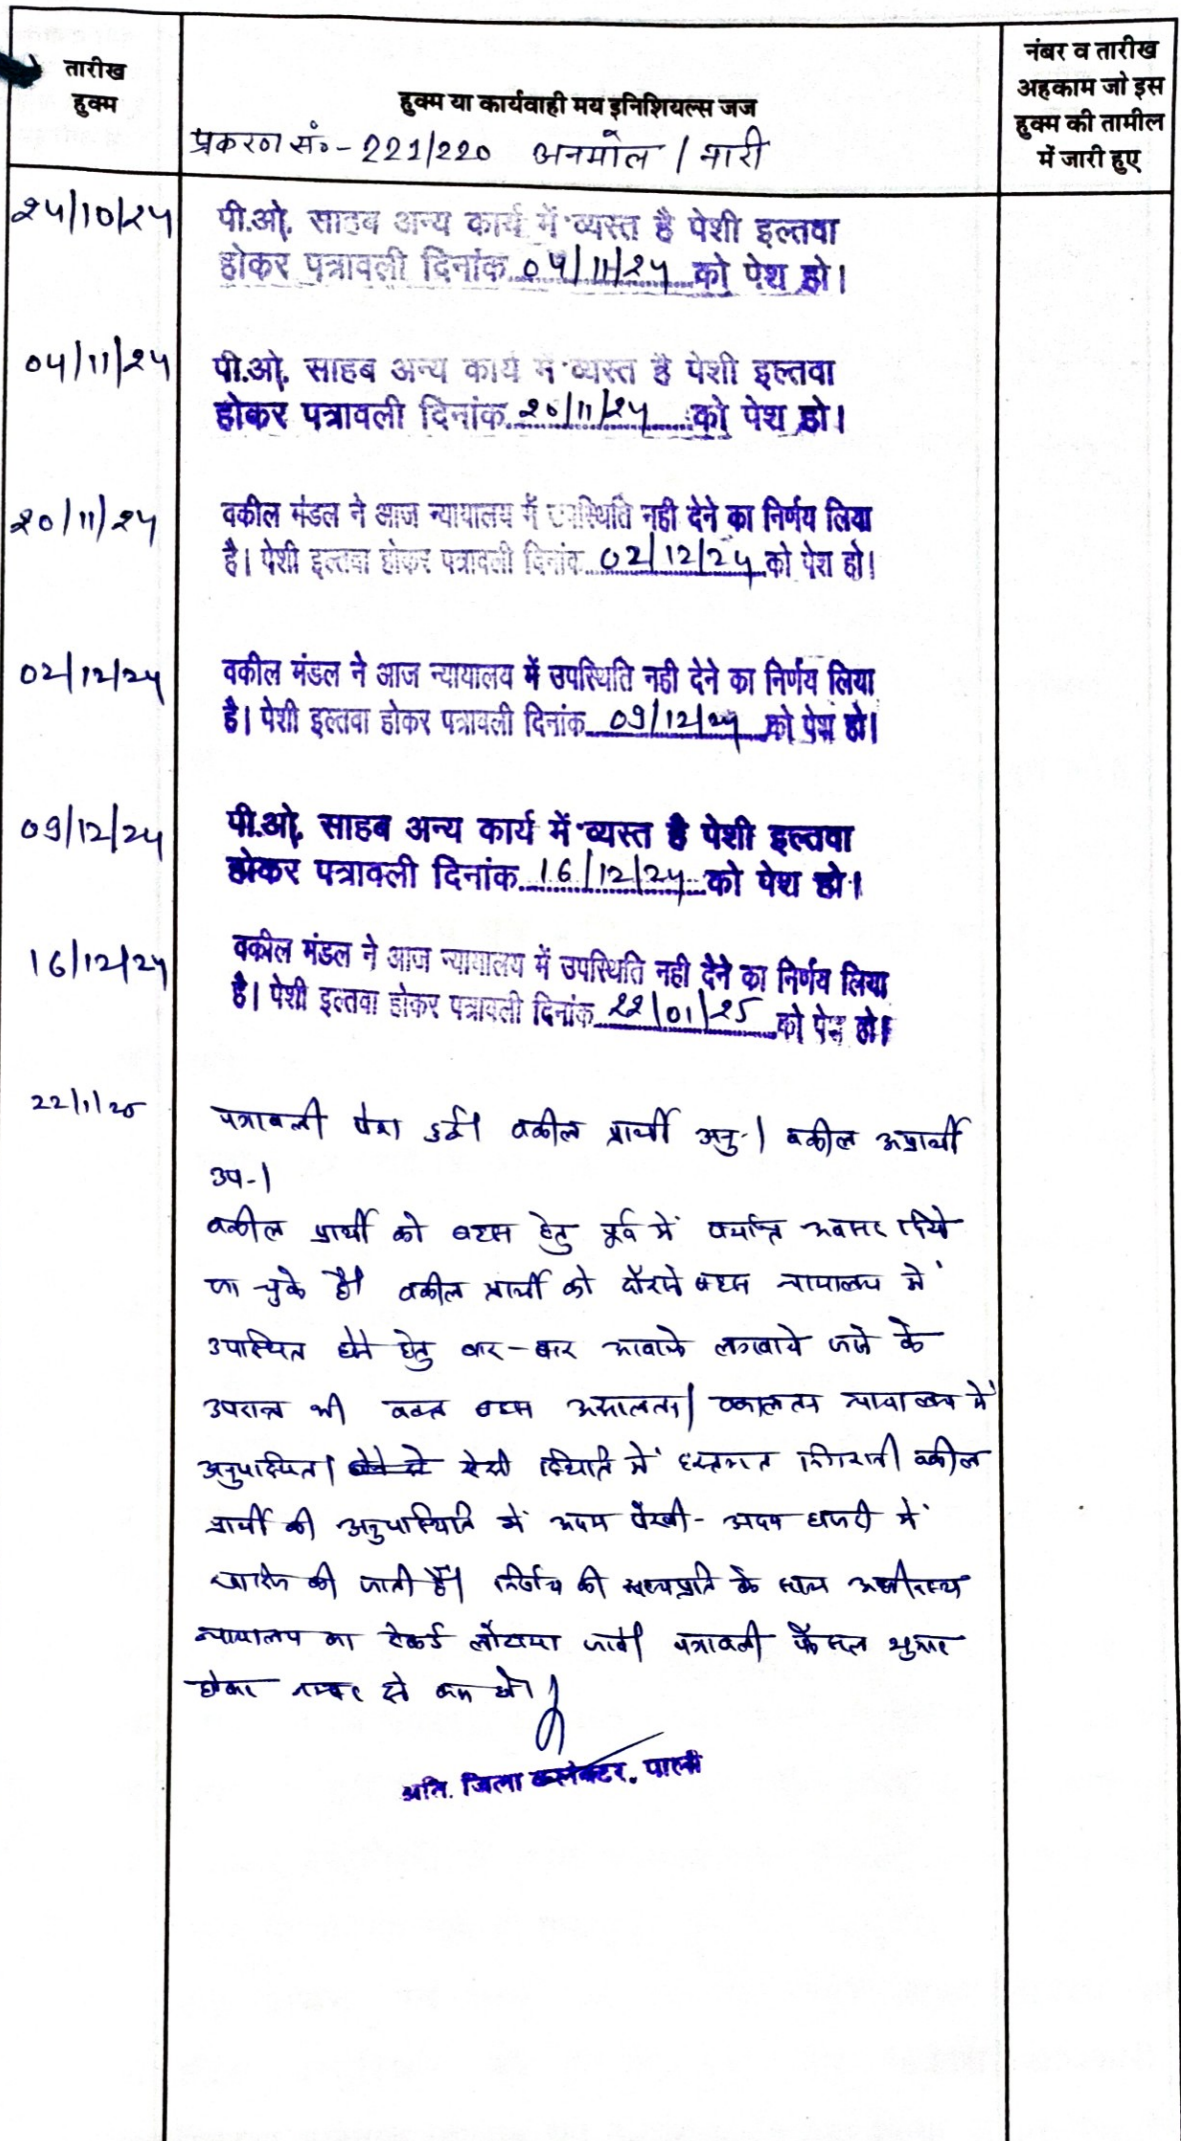 तारीख
हुक्म
हुक्म या कार्यवाही मय इनिशियल्स जज
नंबर व तारीख
अहकाम जो इस
हुक्म की तामील
में जारी हुए
प्रकरण सं०- 221/220 अनमोल / नारी
24/10/24
पी.ओ. साहब अन्य कार्य में व्यस्त है पेशी इल्तवा
होकर पत्रावली दिनांक 04/11/24 को पेश हो।
04/11/24
पी.ओ. साहब अन्य कार्य में व्यस्त है पेशी इल्तवा
होकर पत्रावली दिनांक 20/11/24 को पेश हो।
20/11/24
वकील मंडल ने आज न्यायालय में उपस्थिति नही देने का निर्णय लिया
है। पेशी इल्तवा होकर पत्रावली दिनांक 02/12/24 को पेश हो।
02/12/24
वकील मंडल ने आज न्यायालय में उपस्थिति नही देने का निर्णय लिया
है। पेशी इल्तवा होकर पत्रावली दिनांक 09/12/24 को पेश हो।
09/12/24
पी.ओ. साहब अन्य कार्य में व्यस्त है पेशी इल्तवा
होकर पत्रावली दिनांक 16/12/24 को पेश हो।
16/12/24
वकील मंडल ने आज न्यायालय में उपस्थिति नही देने का निर्णय लिया
है। पेशी इल्तवा होकर पत्रावली दिनांक 22/01/25 को पेश हो।
22/1/25
पत्रावली पेश हुई। वकील प्रार्थी अनु-। वकील अप्रार्थी
उप-।
वकील प्रार्थी को बहस हेतु पूर्व में पर्याप्त अवसर दिये
जा चुके है। वकील प्रार्थी को दौराने बहस न्यायालय में
उपस्थित होने हेतु बार-बार आवाजे लगवाये जाने के
उपरान्त भी वक्त बहस असालतन/ वकालतन न्यायालय में
अनुपस्थित। ऐसी स्थिति में हस्तगत निगरानी वकील
प्रार्थी की अनुपस्थिति में अदम पैरवी- अदम हाजरी में
खारिज की जाती है। निर्णय की सत्यप्रति के साथ अधीनस्थ
न्यायालय का रेकर्ड लौटाया जावे। पत्रावली फैसल शुमार
होकर नम्बर से कम हो।
अति. जिला कलेक्टर, पाली